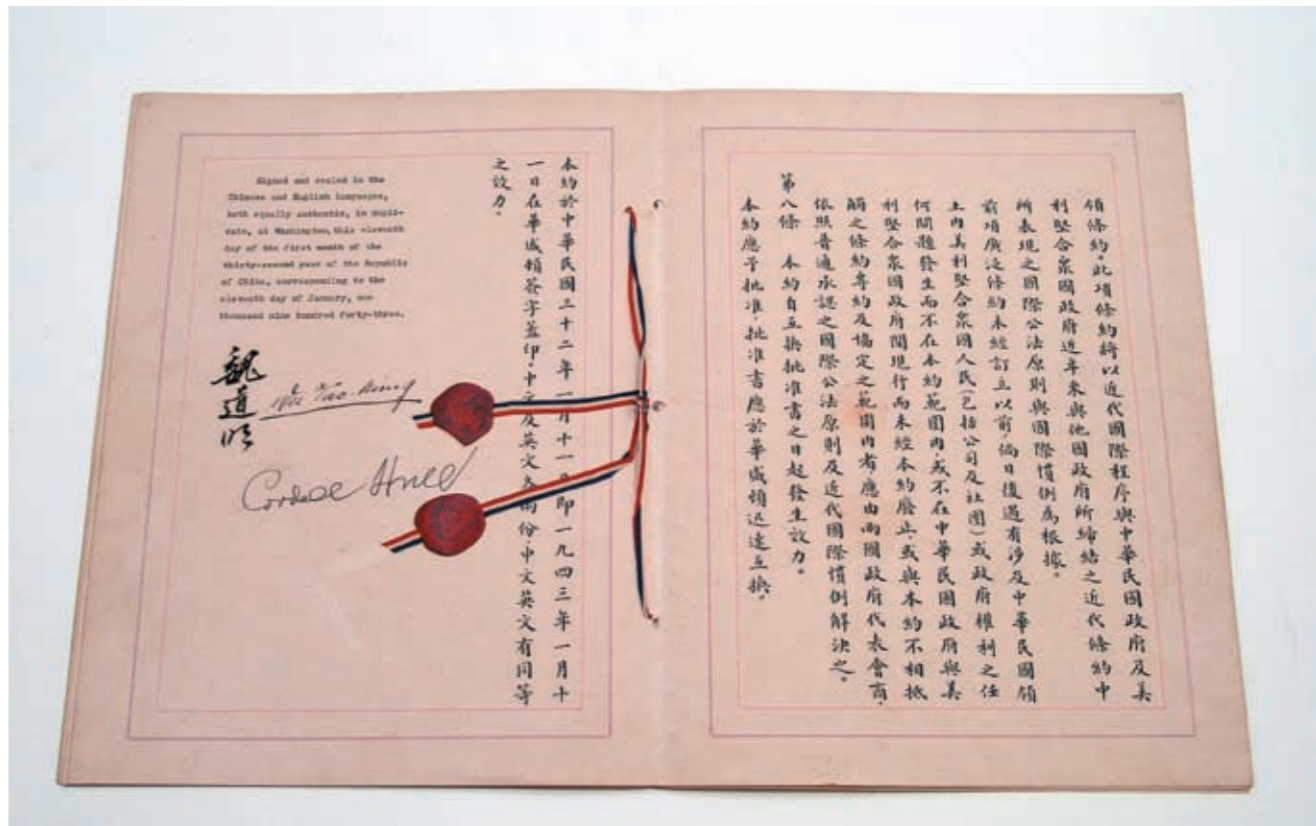 領條約。此項條約將以近代國際程序與中華民國政府及美
利堅合衆國政府近年來與他國政府所締結之近代條約中
所表現之國際公法原則與國際慣例為根據。
前項廣泛條約未經訂立以前，倘日後遇有涉及中華民國領
土內美利堅合衆國人民(包括公司及社團)或政府權利之任
何問題發生而不在本約範圍內，或不在中華民國政府與美
利堅合衆國政府間現行而未經本約廢止，或與本約不相抵
觸之條約專約及協定之範圍內者，應由兩國政府代表會商，
依照普通承認之國際公法原則及近代國際慣例解決之。
第八條　本約自互換批准書之日起發生效力。
本約應予批准，批准書應於華盛頓迅速互換。
本約於中華民國三十二年一月十一日即一九四三年一月十
一日在華盛頓簽字蓋印。中文及英文各兩份，中文英文有同等
之效力。
Signed and sealed in the
Chinese and English languages,
both equally authentic, in dupli-
cate, at Washington, this eleventh
day of the first month of the
thirty-second year of the Republic
of China, corresponding to the
eleventh day of January, one
thousand nine hundred forty-three.
魏道明
Wei Tao-ming
Cordell Hull